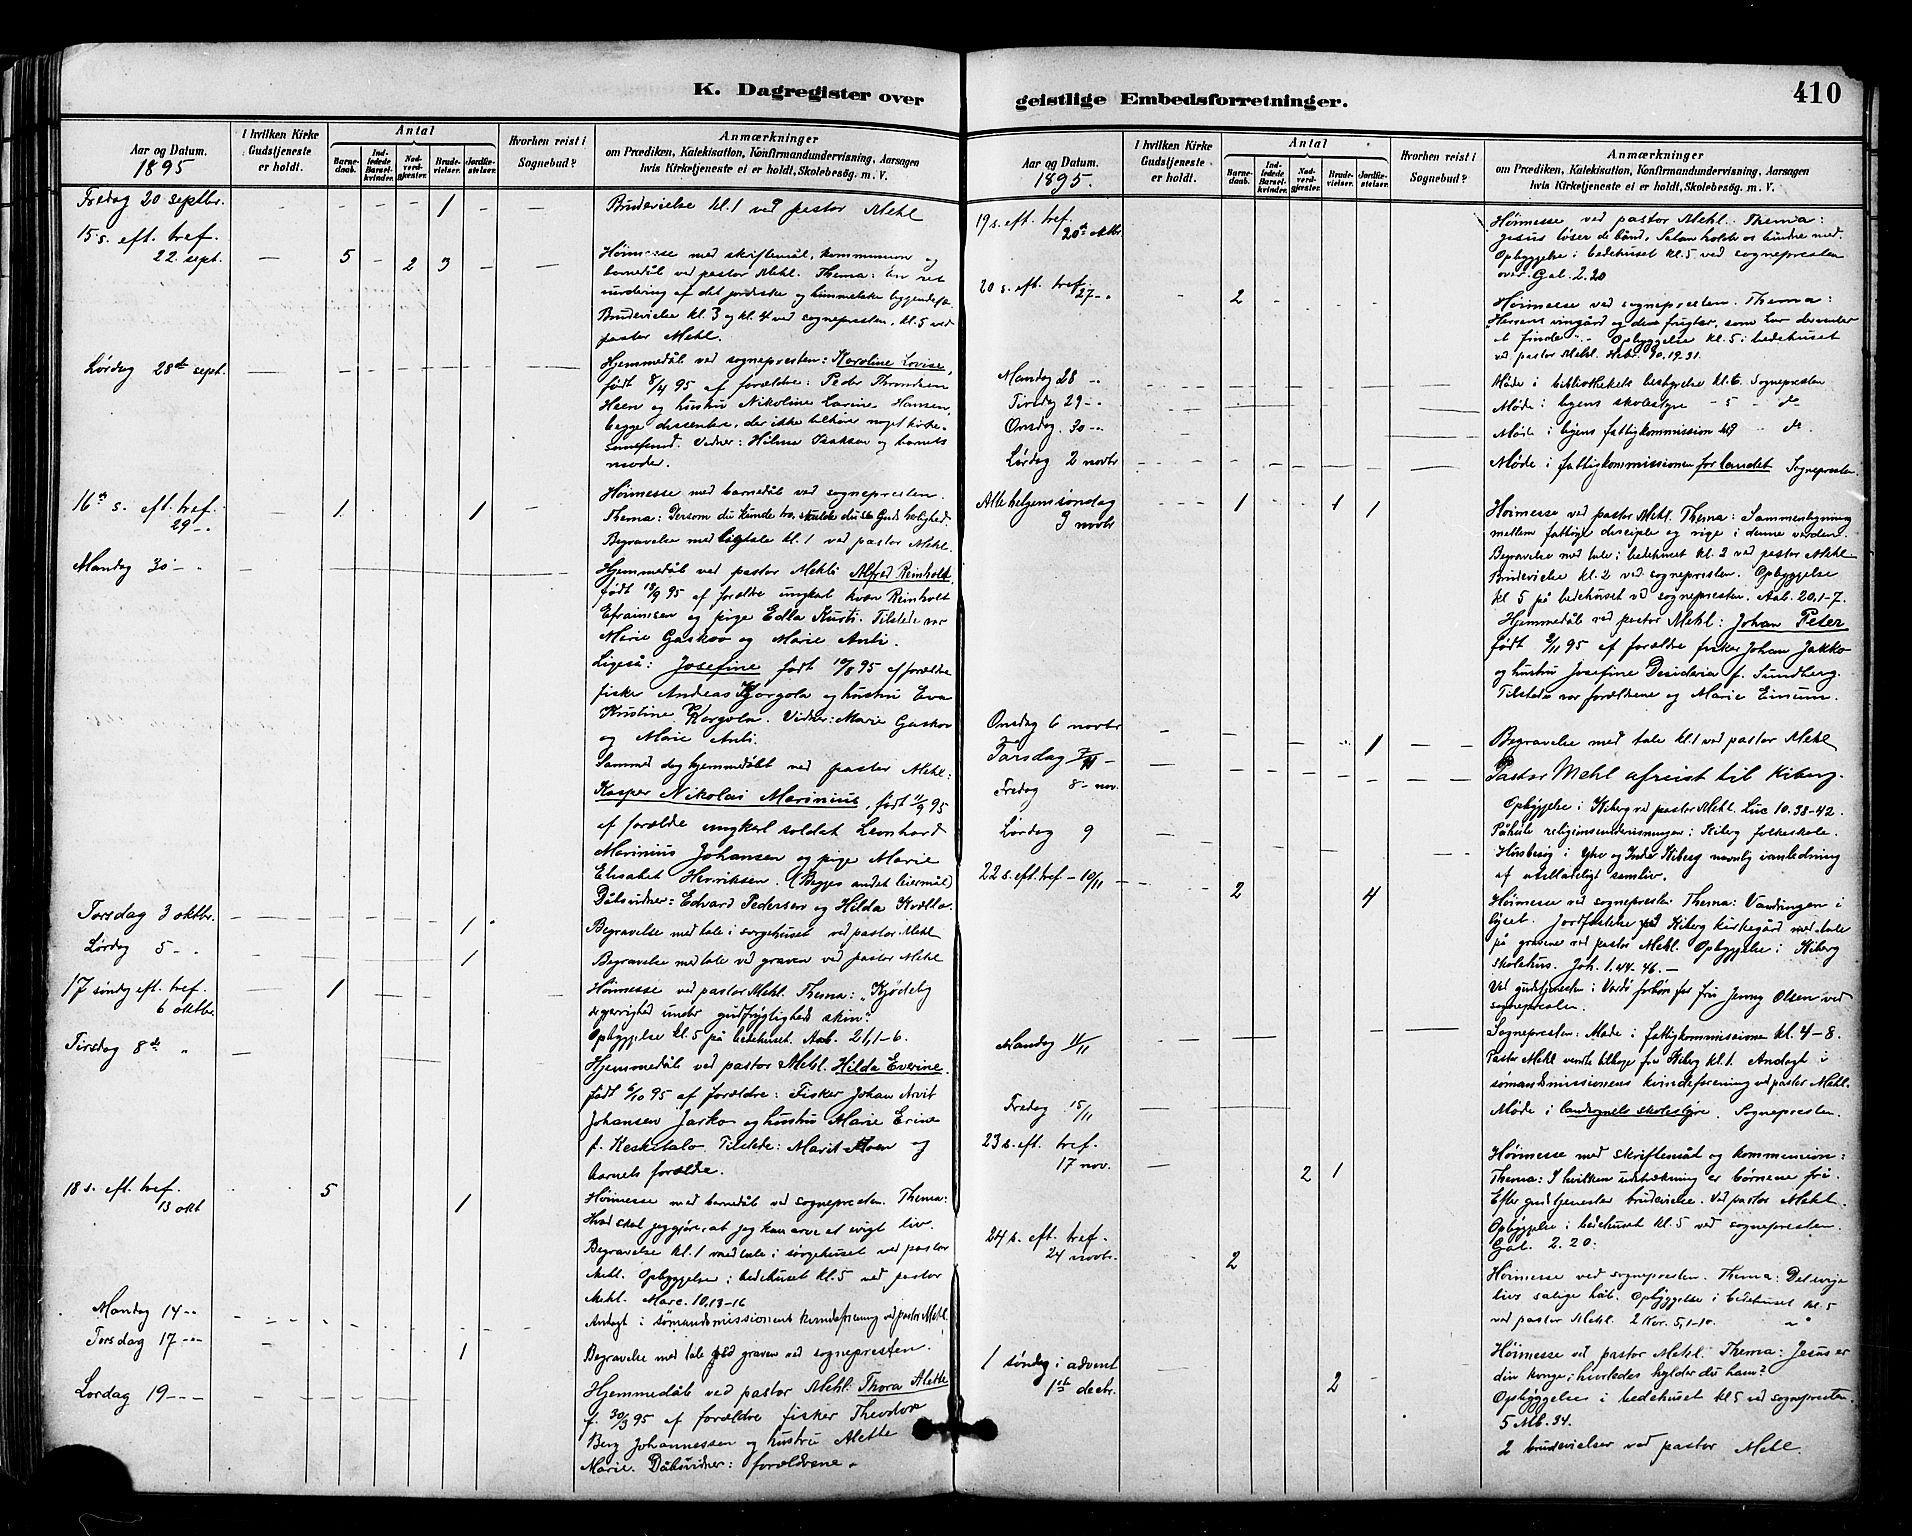 K. Dagregister over geistlige Embedsforretninger.
410
Aar og Datum.
1895
I hvilken Kirke
Gudstjeneste
er holdt.
Antal
Barne-
daab.
Ind-
ledede
Barsel-
kvinder.
Nad-
verd-
gjæster.
Brude-
vielser.
Jordfæ-
stelser.
Hvorhen reist i
Sognebud?
Anmærkninger
om Prædiken, Katekisation, Konfirmandundervisning, Aarsagen
hvis Kirketjeneste ei er holdt, Skolebesøg. m. V.
Fredag 20 septbr. - - - - 1 - - Brudevielse kl. 1 ved pastor Mehl
15 s. eft. tref.
22. sept. - 5 - 2 3 - - Høimesse med skriftemål, kommunion og
barnedåb ved pastor Mehl. Thema: En ret
vurdering af det jordiske og himmelske
Brudevielse kl. 3 og kl. 4 ved sognepresten, kl. 5 ved
pastor Mehl.
Lørdag 28de sept. Hjemmedåb ved sognepresten: Karoline Lovise,
født 8/4 95 af forældre: Peder Throndsen
Heen og hustru Nikoline Larine Hansen,
begge dissentere, der ikke tilhøre noget kirke-
samfund. Vidner: Hilma Isaksen og barnets
moder.
16de s. eft. tref.
29 - „ 1 1 Høimesse med barnedåb ved sognepresten.
Thema: Dersom du kunde tro, skulde du se Guds herlighed.
Begravelse med tale kl. 1 ved pastor Mehl.
Mandag 30 - „ Hjemmedåb ved pastor Mehl: Alfred Reinholt,
født 18/9 95 af forældre ungkarl kvæn Reinholt
Efraimsen og pige Edla Kurti. Tilstede var
Marie Gaskov og Marie Anti.
Ligeså: Josefine født 10/8 95 af forældre
fisker Andreas Korgola og hustru Eva
Kristine Korgola. Vidner: Marie Gaskov
og Marie Anti.
Samme dag hjemmedøbt ved pastor Mehl:
Kasper Nikolai Marinius, født 11/9 95
af forældre ungkarl soldat Leonhard
Marinius Johansen og pige Marie
Elisabet Henriksen. (Begges andet leiermål)
Dåbsvidner: Edvard Pedersen og Hilda
Torsdag 3 oktbr. 1 Begravelse med tale i sørgehuset ved pastor Mehl
Lørdag 5 - „ 1 Begravelse med tale ved graven ved pastor Mehl
17 søndg eft. tref.
6 oktbr. 1 Høimesse ved pastor Mehl. Thema: „Kjødelig
ærgerrighed under gudfrygtigheds skin."
Opbyggelse kl. 5 på bedehuset. Aab. 21, 1-6.
Tirsdag 8de „ Hjemmedåb ved pastor Mehl. Hilda Everine.
født 6/10 95 af forældre: Fisker Johan Arvit
Johansen Jarko og hustru Marie Erine
f. Keskitalo. Tilstede: Marit Moen og
barnets forældre.
18 s. eft. tref.
13 okt 5 1 Høimesse med barnedåb ved sognepresten. Thema:
Hvad skal jeg gjøre, at jeg kan arve et evigt liv.
Begravelse kl. 1 med tale i sørgehuset ved pastor
Mehl. Opbyggelse i bedehuset kl. 5 ved pastor
Mehl. Marc. 10, 13-16
Mandag 14 - „ Andagt i sømandsmissionens kvindeforening ved pastor Mehl.
Torsdag 17 - „ 1 Begravelse med tale ved graven ved sognepresten.
Lørdag 19 - - Hjemmedåb ved pastor Mehl: Thora Alette
f. 30/3 95 af forældre fisker Theodor
Berg Johannessen og hustru Alette
Marie. Dåbsvidner: forældrene.
Aar og Datum.
1895.
I hvilken Kirke
Gudstjeneste
er holdt.
Antal
Barne-
daab.
Ind-
ledede
Barsel-
kvinder.
Nad-
verd-
gjæster.
Brude-
vielser.
Jordfæ-
stelser.
Hvorhen reist i
Sognebud?
Anmærkninger
om Prædiken, Katekisation, Konfirmandundervisning, Aarsagen
hvis Kirketjeneste ei er holdt, Skolebesøg. m. V.
19 s. eft. tref.
20de oktbr. Høimesse ved pastor Mehl. Thema:
Jesus løser de bånd, Satan holder os bundne med.
Opbyggelse i bedehuset kl. 5 ved sognepresten
over Gal. 2. 20
20 s. eft. tref.
27 - „ 2 Høimesse ved sognepresten. Thema:
Herrens vingård og dens frugter, som
at finde. Opbyggelse kl. 5 i bedehuset
ved pastor Mehl. Hebr. 10. 19. 31.
Mandag 28 „ Møde i bibliothekets bestyrelse kl. 6. Sognepresten
Tirsdag 29 - „ Møde i byens skolestyre - 5 - do
Onsdag 30 - „ Møde i byens fattigkommission do
Lørdag 2 novbr Møde i fattigkommissionen for landet Sognepresten
Alle helgens søndag
3 novbr 1 1 1 Høimesse ved pastor Mehl. Thema: Sammenligning
mellem fattige disciple og rige i denne verden.
Begravelse med tale i bedehuset kl. 2 ved pastor Mehl
Brudevielse kl. 2 ved sognepresten. Opbyggelse
kl 5 på bedehuset ved sognepresten. Aab. 20, 1-7.
Hjemmedåb ved pastor Mehl: Johan Peter
født 2/11 95 af forældre fisker Johan Jakko
og hustru Josefine Desideria f. Sundberg.
Tilstede var forældrene og Marie Einum.
Onsdag 6 novbr 1 Begravelse med tale kl. 1 ved pastor Mehl
Torsdag 7/11 - Pastor Mehl afreist til Kiberg.
Fredag 8 - nov. Opbyggelse i Kiberg ved pastor Mehl. Luc 10. 38-42.
Lørdag 9 Påhørte religionsundervisningen i Kiberg folkeskole.
Husbesøg i Ytre og Indre Kiberg navnlig i anledning
af utilladeligt samliv.
22 s. eft. tref - 10/11 2 4 Høimesse ved sognepresten. Thema: Vandringen i
lyset. Jordfæstelse ved Kiberg kirkegård med tale
på gravene ved pastor Mehl. Opbyggelse i Kiberg
skolehus. Joh. 1. 44-46. -
Ved gudstjenesten i Vardø forbøn for fru Jenny Olsen ved
sognepresten.
Mandag 11/11 Sognepresten: Møde i fattigkommissionen kl. 4-8.
Pastor Mehl vendte tilbage fra Kiberg kl. 1. Andagt i
sømandsmissionens kvindeforening ved pastor Mehl.
Fredag 15/11 Møde i landsognets skolestyre. Sognepresten.
23 s. eft. tref.
17 nov. 2 1 Høimesse med skriftemål og kommunion:
Thema: I hvilken udstrækning er børnene fri.
Efter gudstjenesten brudevielse. Ved pastor Mehl.
Opbyggelse i bedehuset kl. 5 ved sognepresten.
Gal. 2. 20.
24 s. eft. tref.
24 novbr. 2 Høimesse ved sognepresten. Thema: Det evige
livs salige håb. Opbyggelse i bedehuset kl. 5
ved pastor Mehl. 2 Kor. 5, 1-10.
1 søndag i advent
1ste decbr. 2 Høimesse ved pastor Mehl. Thema: Jesus er
din konge; hvorledes hylder du ham?
Opbyggelse i bedehuset kl. 5 ved sognepresten.
5 Mb. 34.
2 brudevielser ved pastor Mehl.